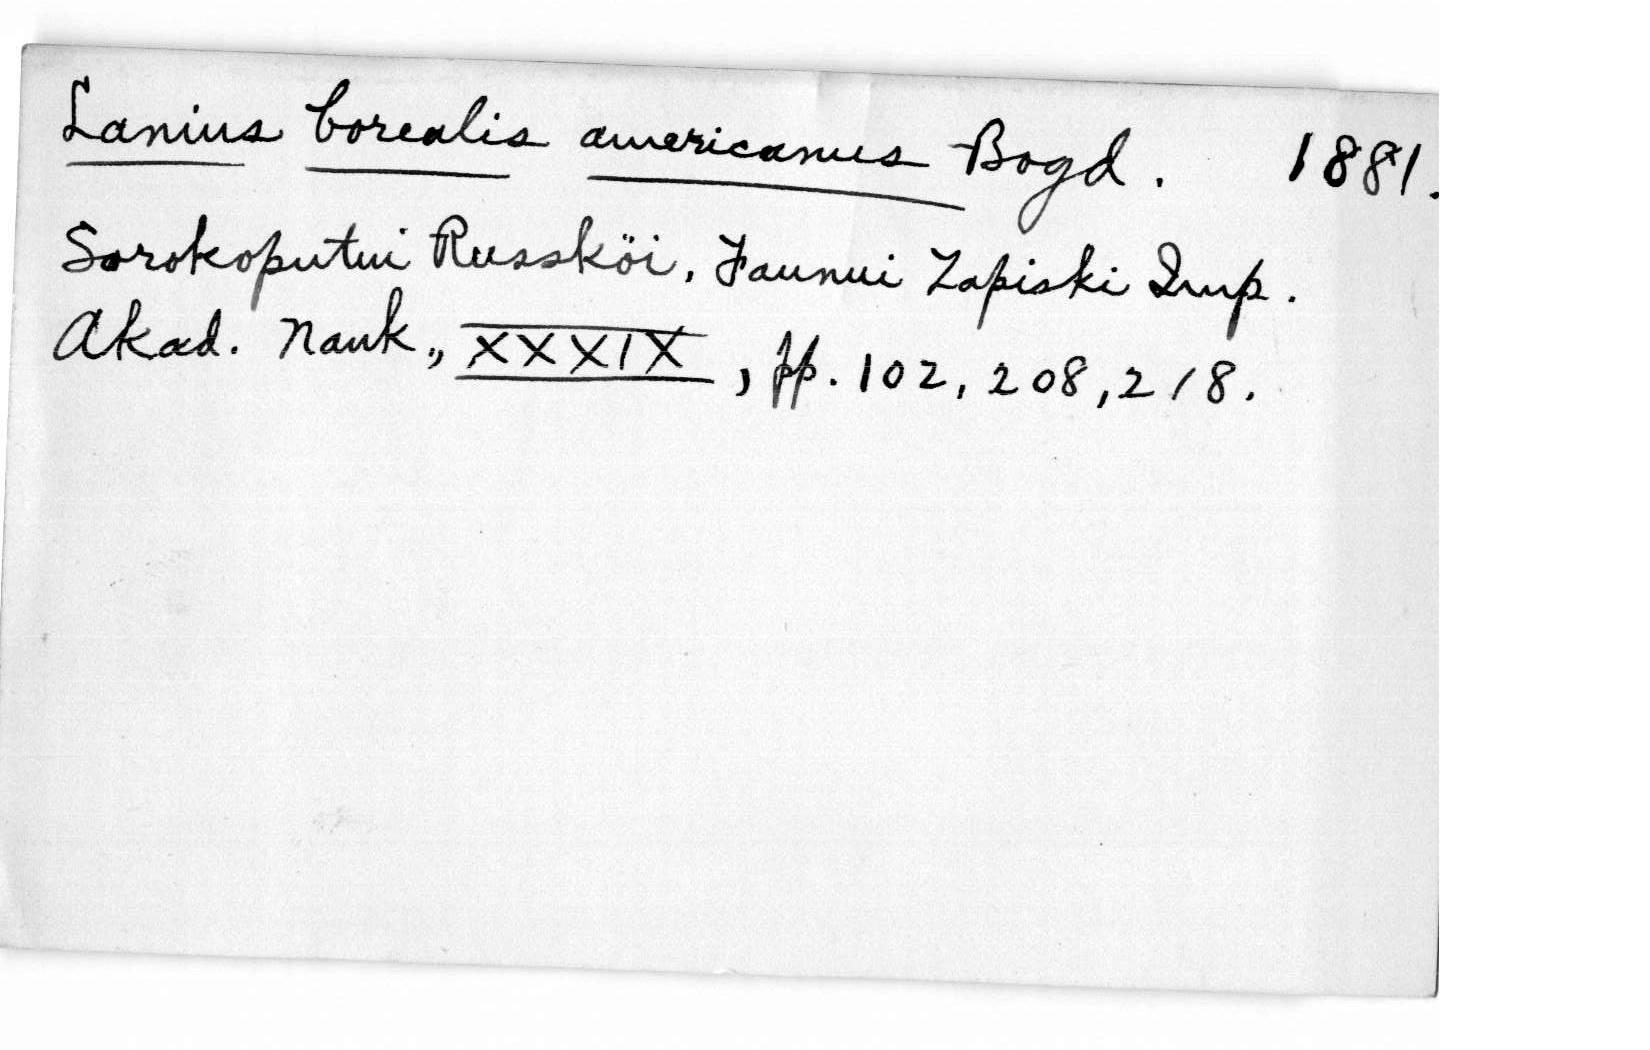 Lanius borealis americanus Bogd. 1881.
Sorokoputui Russköi, Faunui Zapiski Imp.
Akad. Nauk., XXXIX, pp. 102, 208, 218.